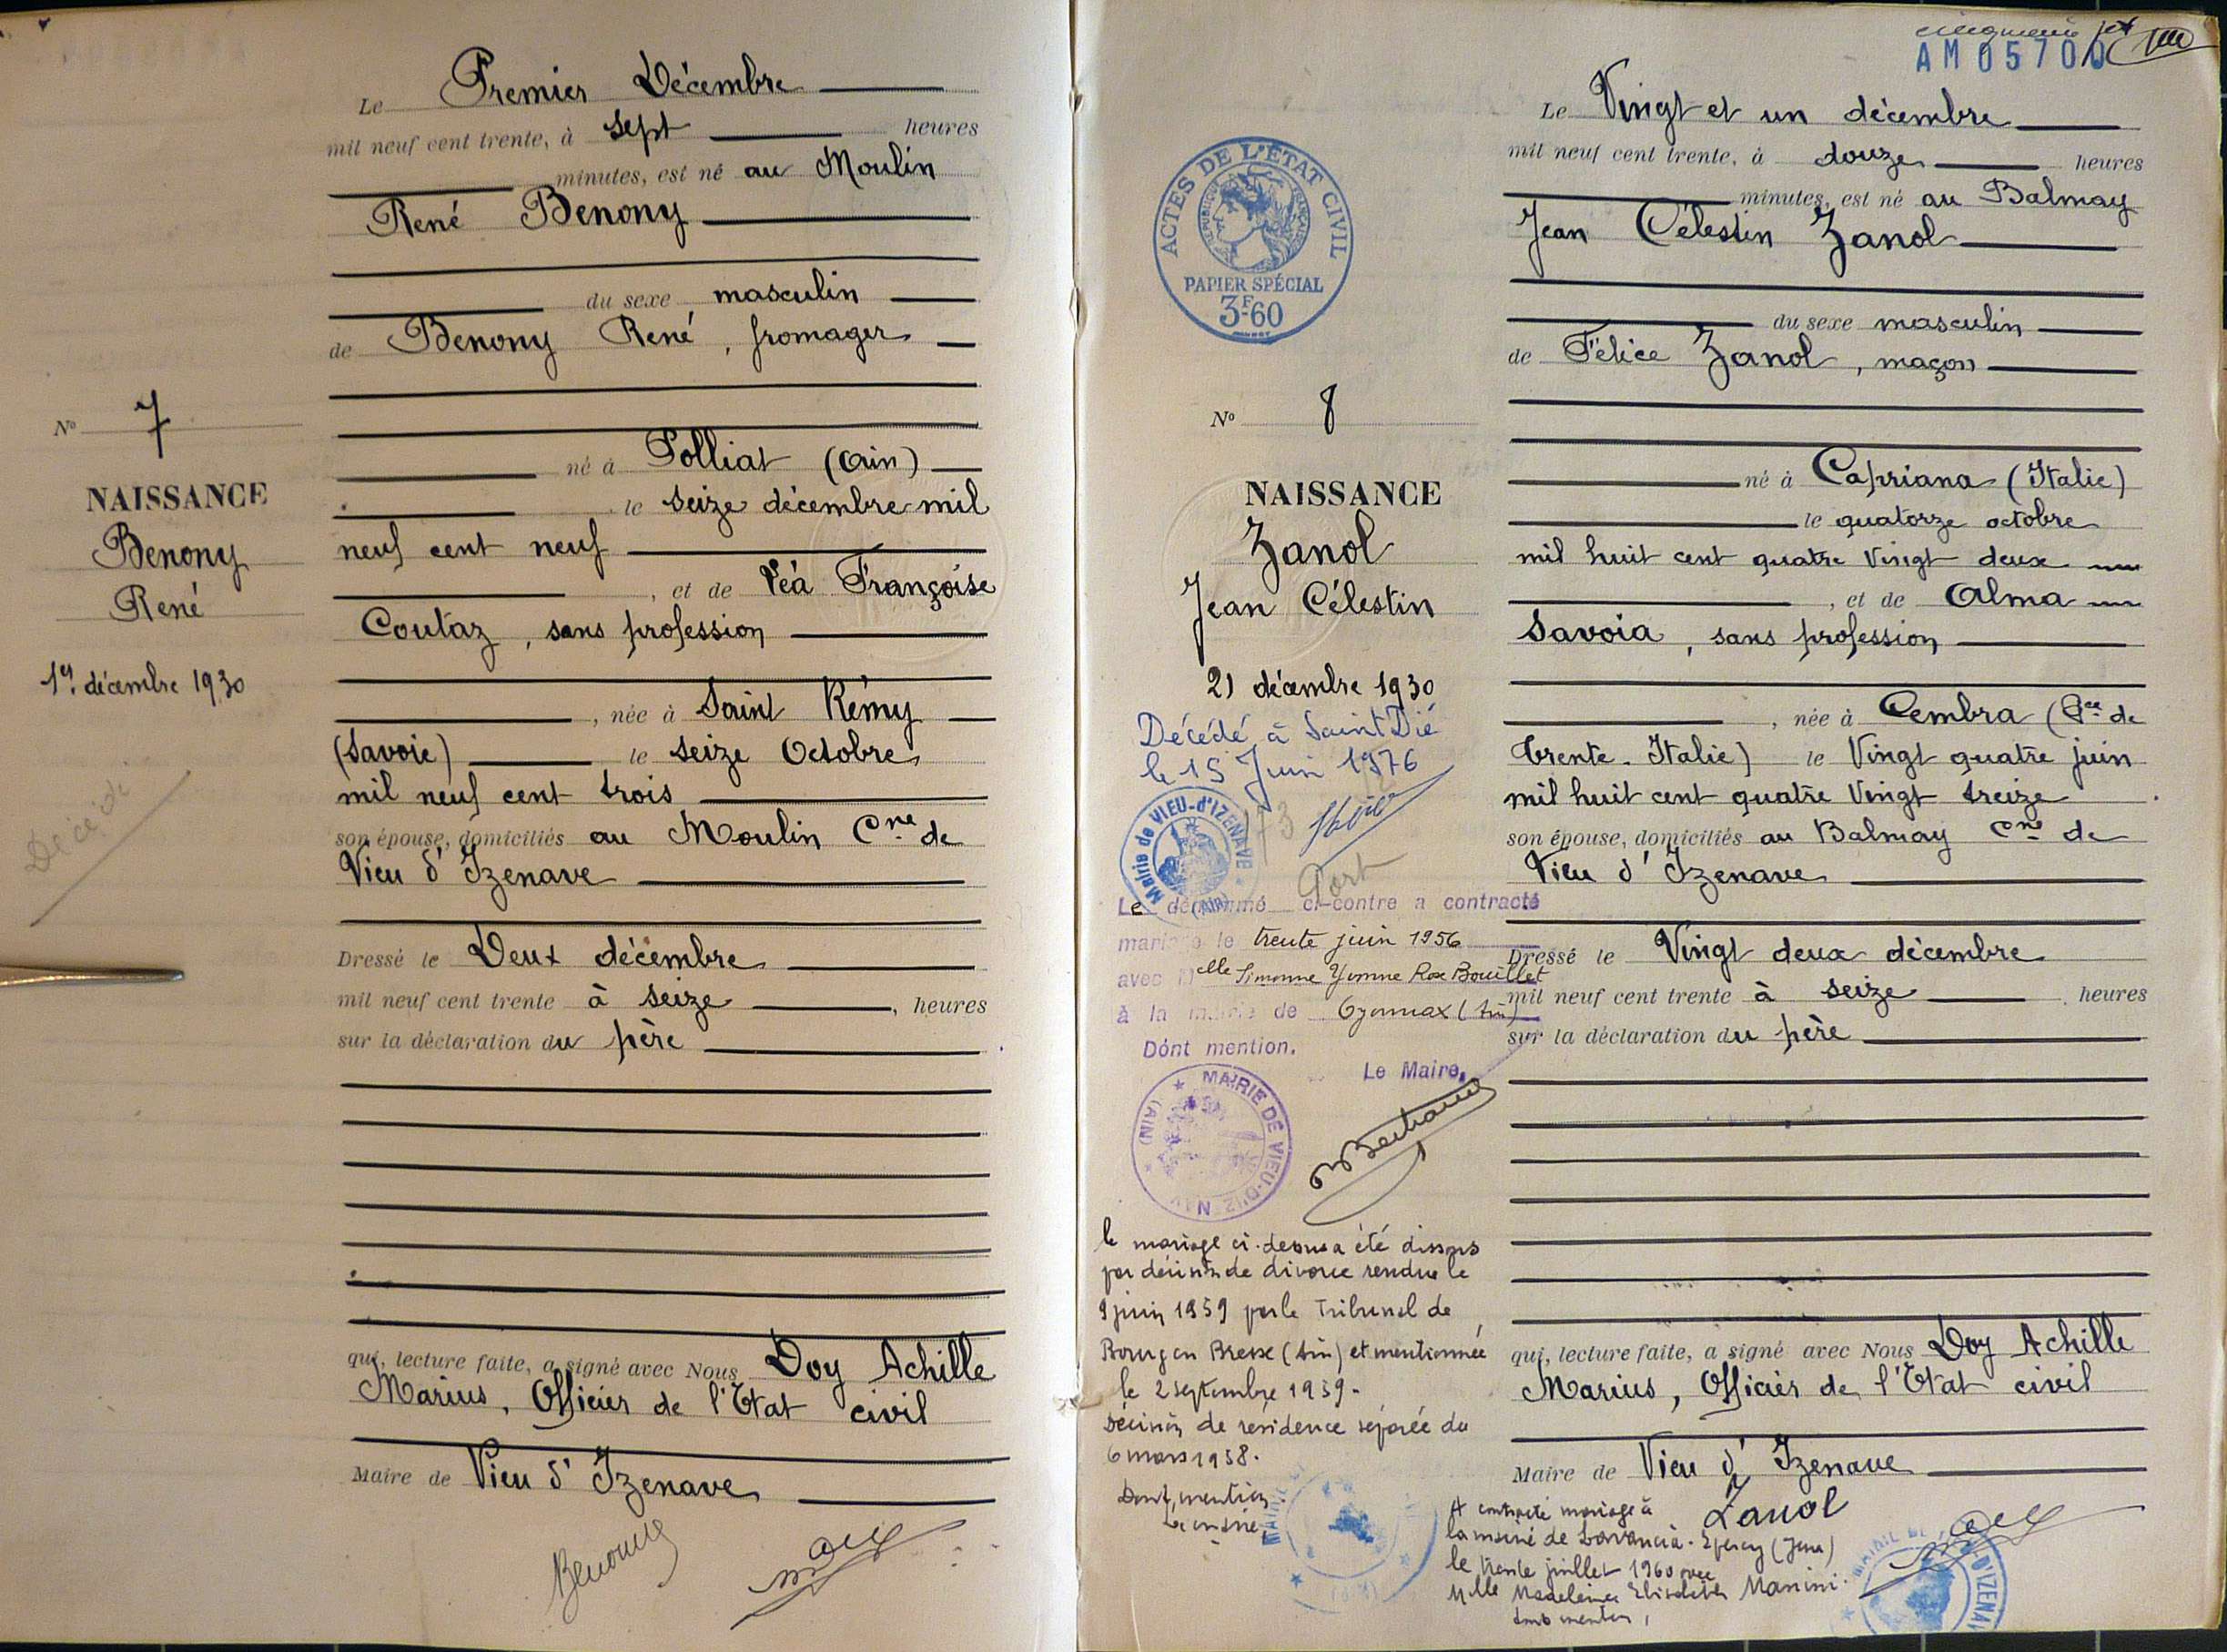 Le Premier Décembre
mil neuf cent trente, à sept heures
minutes, est né au Moulin
René Benony
du sexe masculin
de Benony René, fromager
né à Polliat (Ain)
le seize décembre mil
neuf cent neuf
, et de Léa Françoise
Coutaz, sans profession
, née à Saint Rémy
(Savoie) le seize Octobre
mil neuf cent trois
son épouse, domiciliés au Moulin Cne de
Vieu d'Izenave
Dressé le Deux décembre
mil neuf cent trente à seize, heures
sur la déclaration du père
qui, lecture faite, a signé avec Nous Doy Achille
Marius, Officier de l'Etat civil
Maire de Vieu d'Izenave
Benony
No 7
NAISSANCE
Benony
René
1er décembre 1930
Décédé
AM 05700
ACTES DE L'ÉTAT CIVIL
RÉPUBLIQUE FRANÇAISE
PAPIER SPÉCIAL
3F60
No 8
NAISSANCE
Zanol
Jean Célestin
21 décembre 1930
Décédé à Saint Dié
le 15 Juin 1976
Mairie de VIEU-d'IZENAVE
(Ain)
Le dénommé ci-contre a contracté
mariage le trente juin 1956
avec Melle Simonne Yvonne Rose Bouillet
à la mairie de Oyonnax (Ain)
Dont mention.
Le Maire,
MAIRIE DE VIEU-D'IZENAVE
(AIN)
le mariage ci-dessus a été dissous
par décision de divorce rendue le
9 juin 1959 par le Tribunal de
Bourg en Bresse (Ain) et mentionnée
le 2 septembre 1959.
Décision de résidence séparée du
6 mars 1958.
Dont mention.
Le maire,
Le Vingt et un décembre
mil neuf cent trente, à douze heures
minutes, est né au Balmay
Jean Célestin Zanol
du sexe masculin
de Félice Zanol, maçon
né à Capriana (Italie)
le quatorze octobre
mil huit cent quatre Vingt deux
, et de Alma
Savoia, sans profession
, née à Cembra (Pce de
Trente. Italie) le Vingt quatre juin
mil huit cent quatre Vingt treize
son épouse, domiciliés au Balmay Cne de
Vieu d'Izenave
Dressé le Vingt deux décembre
mil neuf cent trente à seize heures
sur la déclaration du père
qui, lecture faite, a signé avec Nous Doy Achille
Marius, Officier de l'Etat civil
Maire de Vieu d'Izenave
Zanol
A contracté mariage à
la mairie de Lavancia-Epercy (Jura)
le trente juillet 1960 avec
Mlle Madeleine Elisabeth Manini.